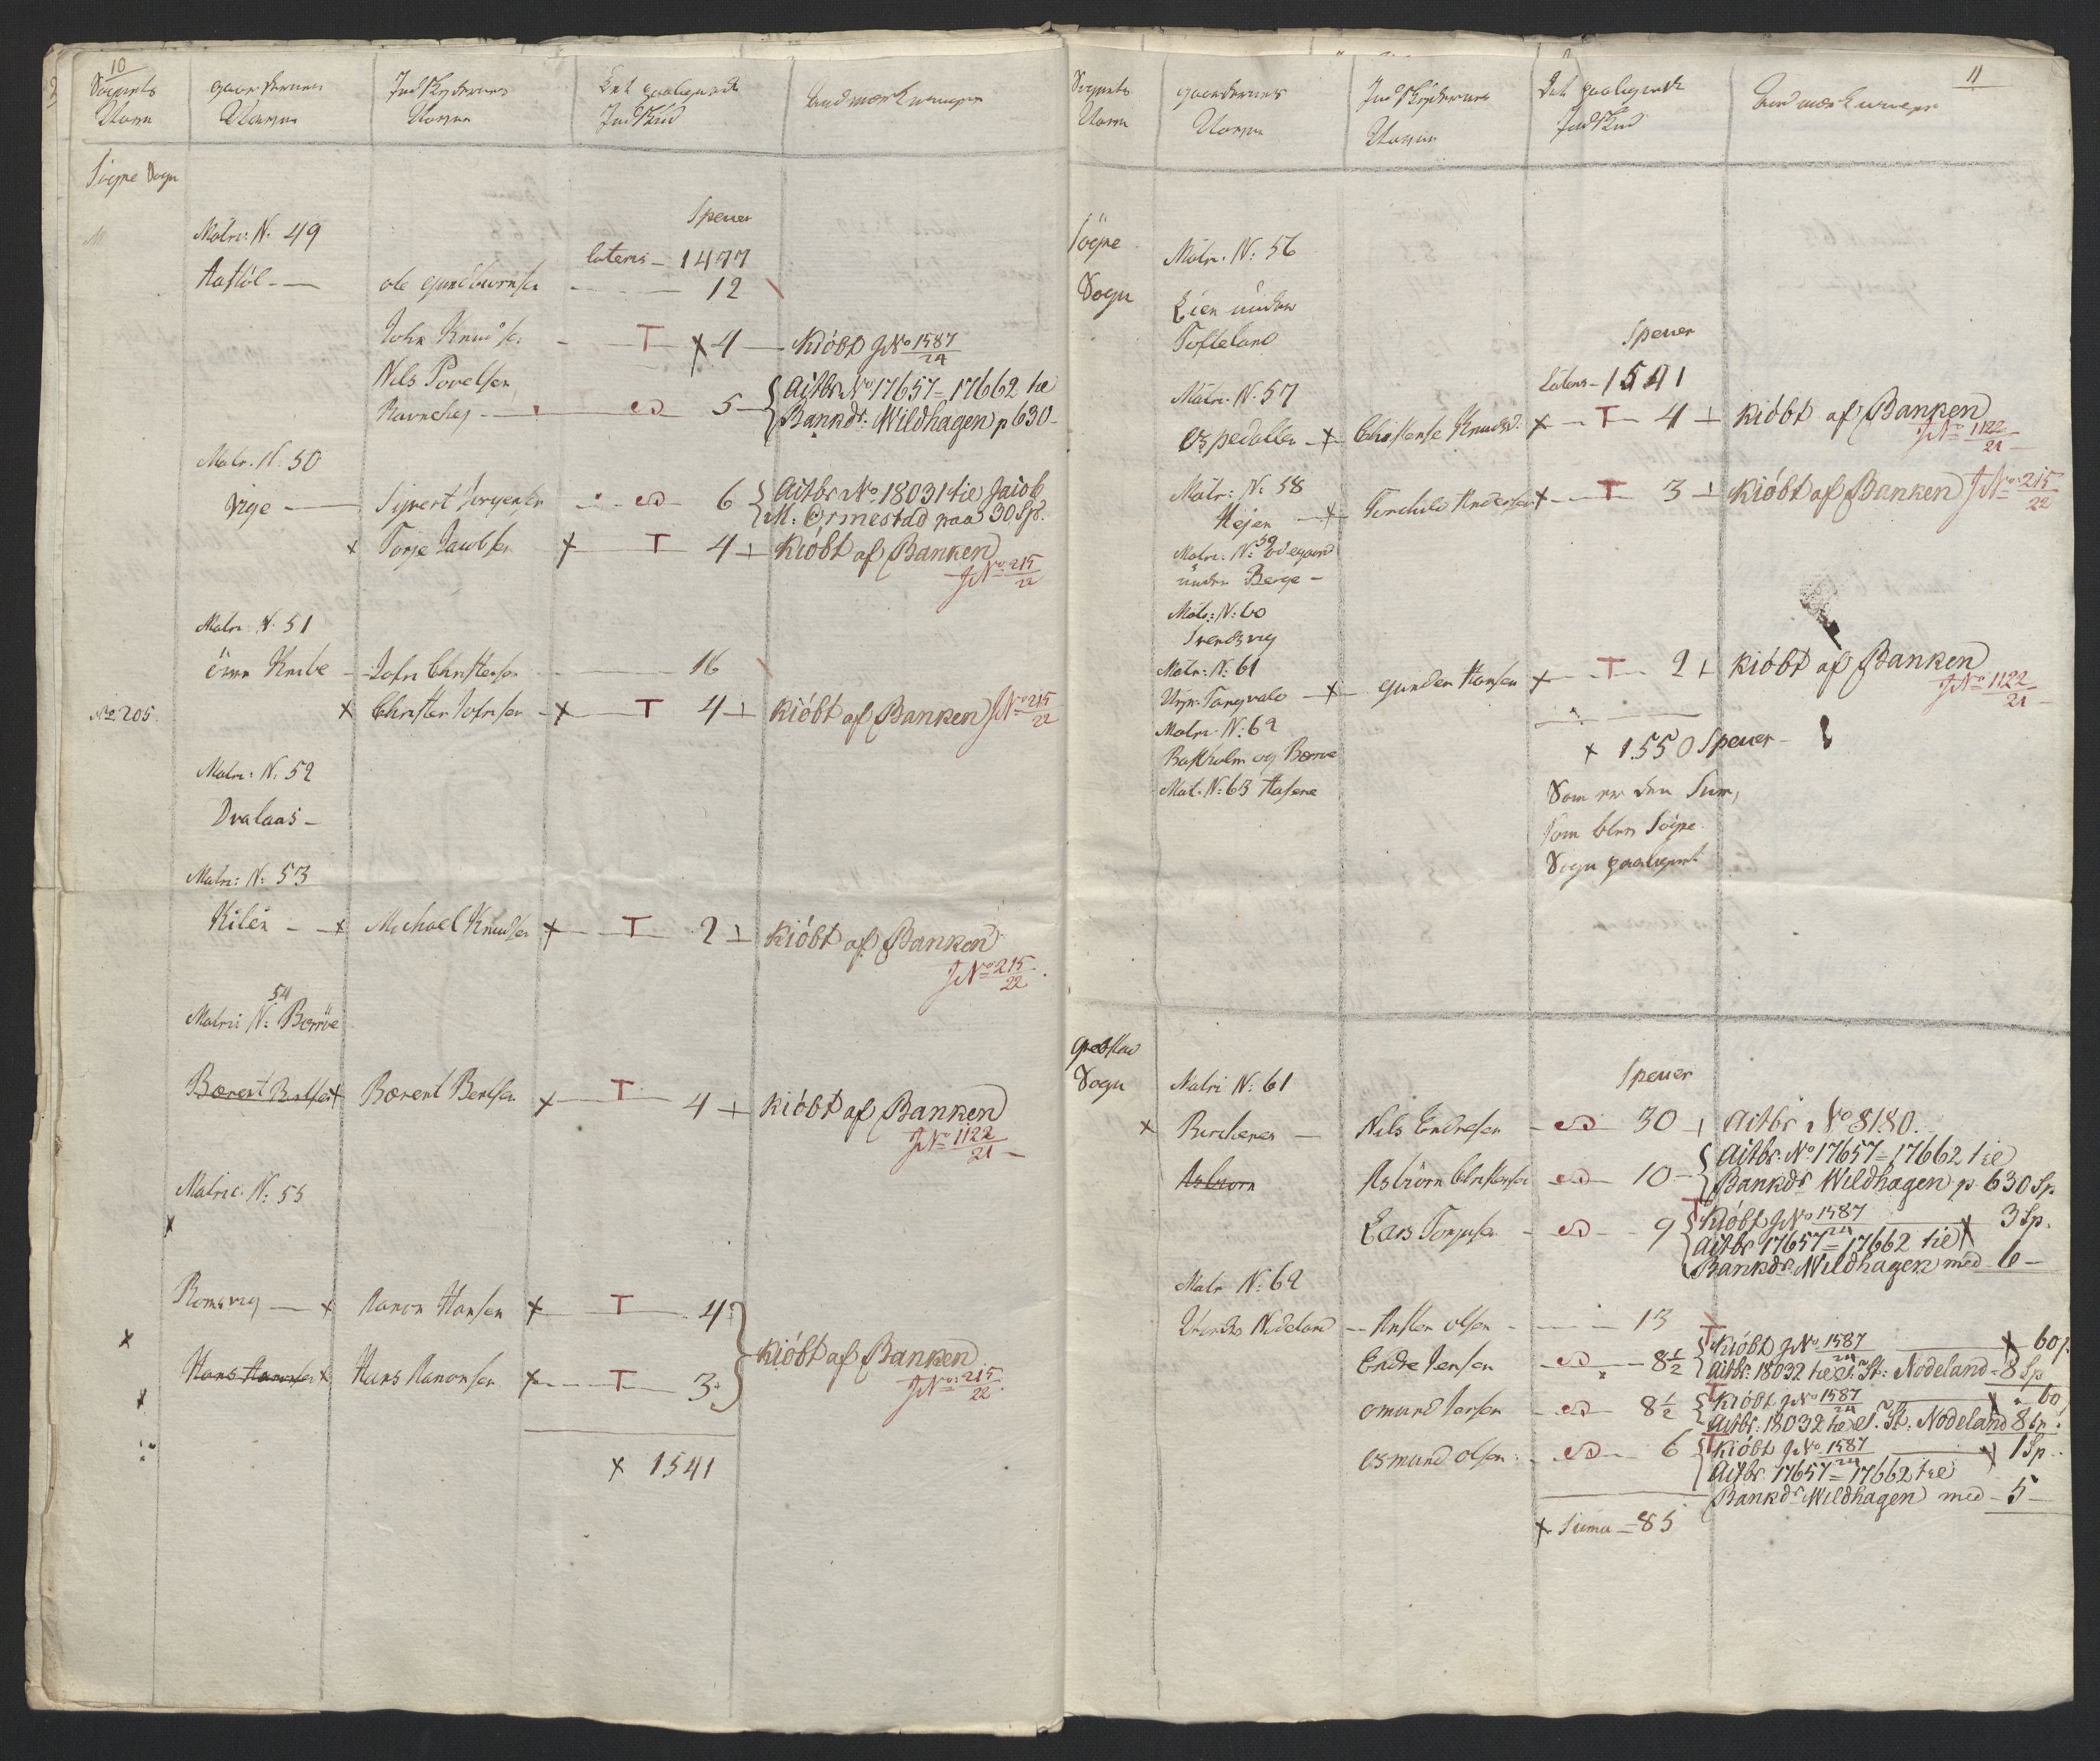 10
Sognets Navn
gaardernes Navne
Indskydernes Navne
Det paalignede Indskud
Anmærkninger
Søgne Sogn
Spener
Matri: N. 49
lateris - 1477
Aastøl - ole gundbiørnsen 12
John Knudsen - T x 4 - Kiöbt JNo 1587/24
Nils Povelsen
Ravnehej - 5 - { Aitbr No 17657 = 17662 til
Bankdr: Wildhagen p 630 -
Matr. N. 50
Vige - Sivert Jørgensen - 6 { Aitbr No 18031 til Jacob
M. Ormestad paa 30 Sp.
x Torje Jacobsen x T 4 - Kiöbt af Banken
JNo 215/22
Matr. N. 51
övre Knibe - John Christensen 16
No 205. x Christen Johnsen - x T 4 - Kiöbt af Banken JNo 215/22
Matr: N. 52
Dvalaas -
Matr: N: 53
Kilen - x Michael Knudsen x T 2 - Kiöbt af Banken
JNo 215/22
54
Matri N: Borröe
Bærent Bentsen x Bærent Bentsen x T 4 + Kiöbt af Banken
JNo 1122/21 -
Matric. N: 55
x
Romsvig - x Aanon Hansen x T 4 }
x Hans Aanonsen x Hans Aanonsen x T 3 } Kiöbt af Banken
JNo 215/22
x
x 1541
11
Sognets Navn
gaardernes Navne
Indskydernes Navne
Det paalignede Indskud
Anmærkninger
Søgne Sogn
Matr. N: 56
Lien under
Tofteland
Spener
Latens - 1541
Matr. N. 57
Espedallen - x Christense Knudsd. x T 4 + Kiöbt af Banken
JNo 1122/21 -
Matr: N: 58
Højen - x Torchild Andersen x T 3 + Kiöbt af Banken JNo 215/22
Matr: N: 59 ødegaard
under Berge -
Matr: N: 60
Svendsvig
Matr: N: 61
Tangvald - x gunder Hansen x T 2 + Kiöbt af Banken
JNo 1122/21 -
Matr. N: 62
og Borøe
x 1550 Spener -
Mat. N: 63 Hasene
Som er den Sum,
som blev Søgne
Sogn paalignet
Greb​stad Sogn
Matri N: 61
Spener
x Birchenes - Nils Endresen - 30 + Aitbr No 8180.
Asbiorn Asbiörn Christensen - 10 - { Aitbr. No 17657 = 17662 til
Bankdr Wildhagen p. 630 Sp.
Lars Torjusen - 9 { T Kiöbt JNo 1587/24 - x 3 Sp.
Aitbr 17657 = 17662 til
Bankdr. Wildhagen med - 6 -
Matr N: 62
Nodeland - Austen olsen - 13
Endre Jensen 8½ { T Kiöbt JNo 1587/24 - x 60 p
Aitbr: 18032 til S. St: Nodeland = 8 Sp
omund Jensen 8½ { T Kiöbt JNo 1587/24 - x 60
Aitbr: 18032 til S. St: Nodeland 8 Sp.
osmund olsen - 6 { T Kiöbt JNo 1587/24 - x 1 Sp.
Aitbr. 17657 = 17662 til
Bankdr Wildhagen med - 5 -
x Suma = 85